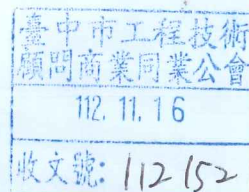 臺中市工程技術
顧問商業同業公會
112.11.16
收文號: 112152